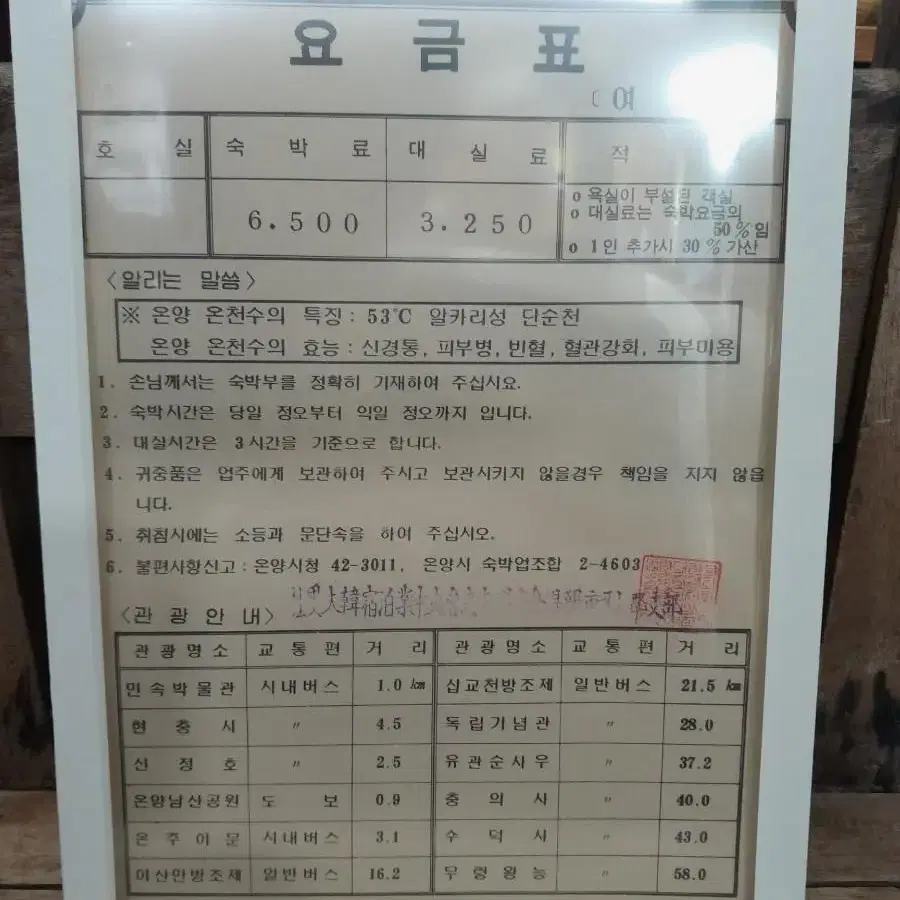 요금표
여
호 실 숙 박 료 대 실 료 적
6.500 3.250
o 욕실이 부설된 객실
o 대실료는 숙박요금의
50%임
o 1인 추가시 30%가산
<알리는 말씀>
※ 온양 온천수의 특징: 53℃ 알카리성 단순천
온양 온천수의 효능: 신경통, 피부병, 빈혈, 혈관강화, 피부미용
1. 손님께서는 숙박부를 정확히 기재하여 주십시요.
2. 숙박시간은 당일 정오부터 익일 정오까지 입니다.
3. 대실시간은 3시간을 기준으로 합니다.
4. 귀중품은 업주에게 보관하여 주시고 보관시키지 않을경우 책임을 지지 않읍
니다.
5. 취침시에는 소등과 문단속을 하여 주십시오.
6. 불편사항신고: 온양시청 42-3011, 온양시 숙박업조합 2-4603
大韓宿泊業
<관광안내>
관광명소 교통편 거 리 관광명소 교통편 거 리
민속박물관 시내버스 1.0㎞ 삽교천방조제 일반버스 21.5㎞
현 충 시 〃 4.5 독립기념관 〃 28.0
신 정 호 〃 2.5 유관순사우 〃 37.2
온양남산공원 도 보 0.9 충 의 사 〃 40.0
온주아문 시내버스 3.1 수 덕 사 〃 43.0
아산만방조제 일반버스 16.2 무령왕능 〃 58.0